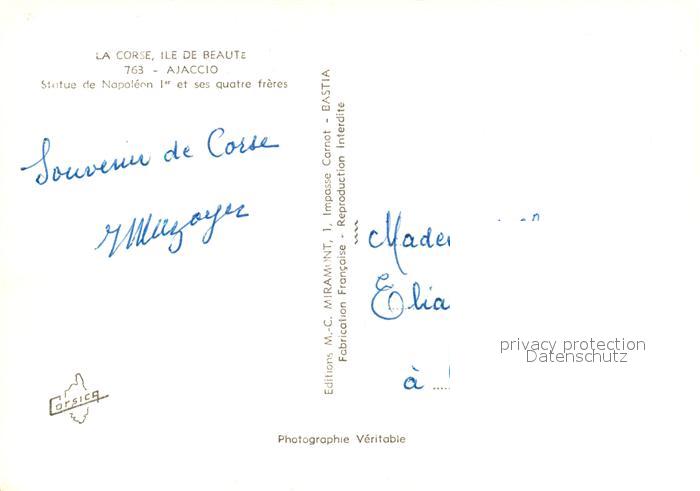 LA CORSE, ILE DE BEAUTE
763 - AJACCIO
Statue de Napoléon Iᵉʳ et ses quatre frères
Souvenir de Corse
Mazoyer
Corsica
Editions M.-C. MIRAMONT, 1, Impasse Carnot - BASTIA
Fabrication Française - Reproduction Interdite
Elia
à
privacy protection
Datenschutz
Photographie Véritable